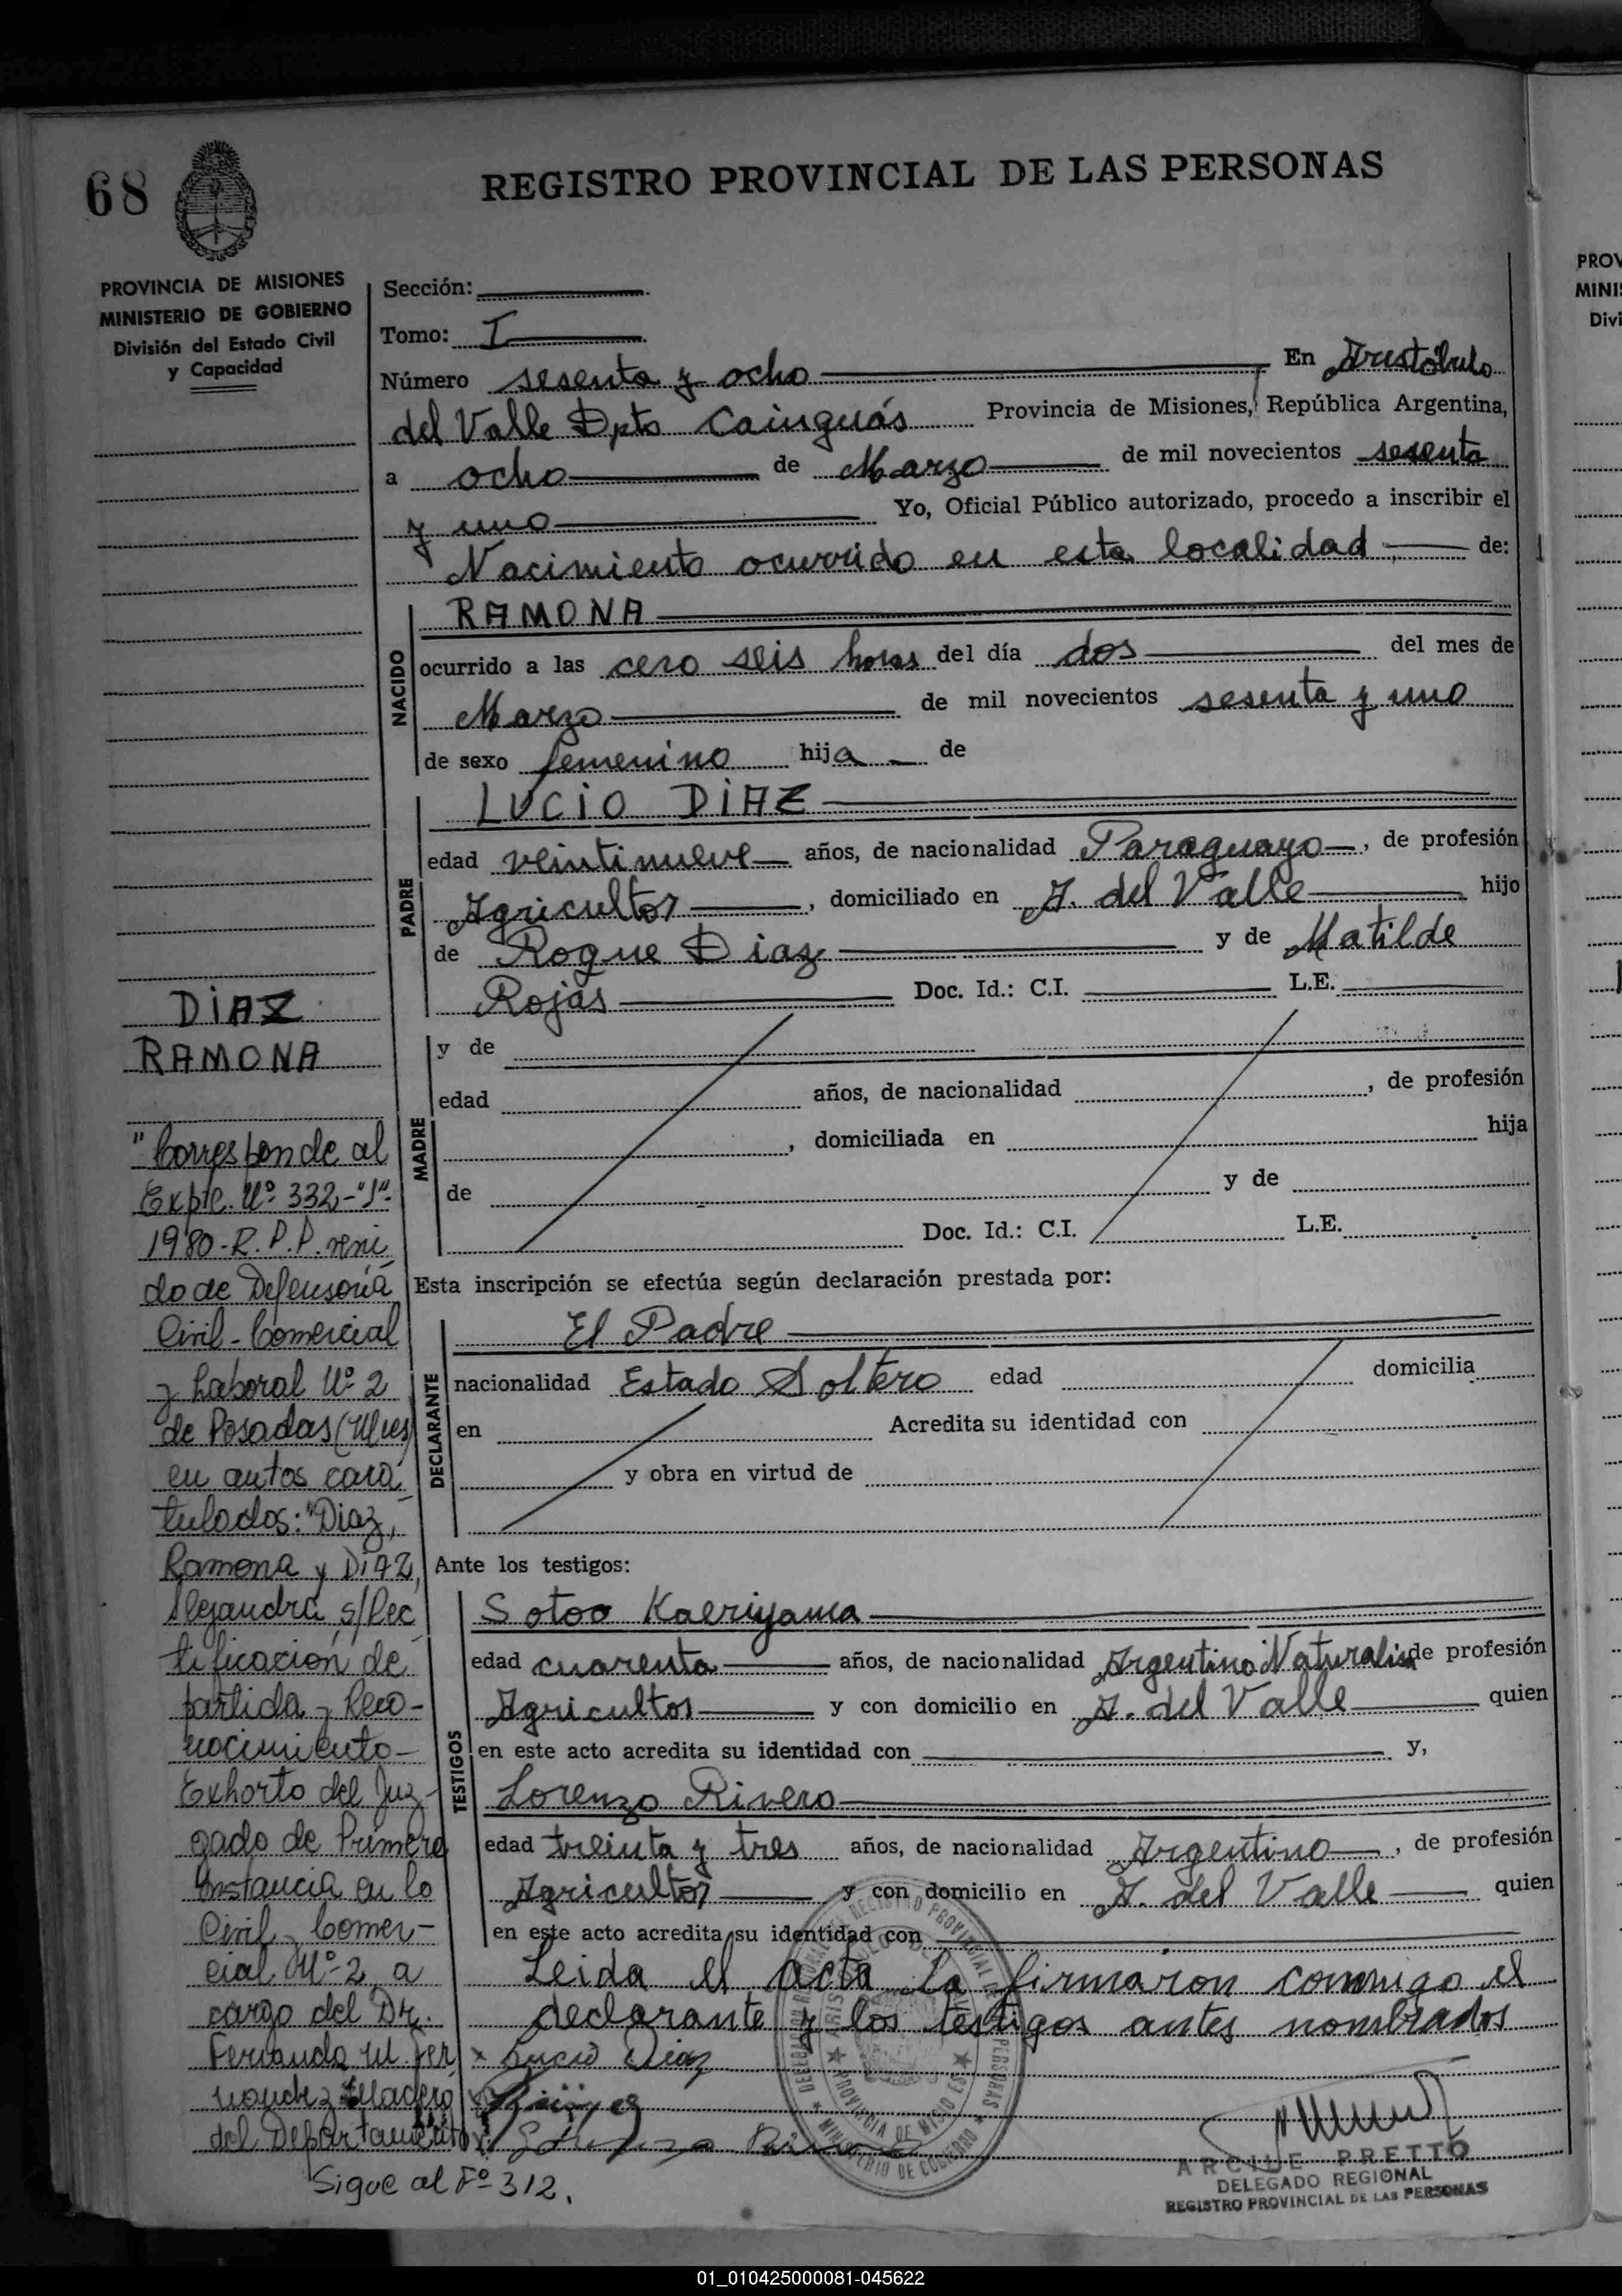 68
REGISTRO PROVINCIAL DE LAS PERSONAS
PROVINCIA DE MISIONES
MINISTERIO DE GOBIERNO
División del Estado Civil
y Capacidad
Sección:
Tomo: I
Número sesenta y ocho En Aristóbulo
del Valle Dpto Cainguás Provincia de Misiones, República Argentina,
a ocho de Marzo de mil novecientos sesenta
y uno Yo, Oficial Público autorizado, procedo a inscribir el
Nacimiento ocurrido en esta localidad de:
NACIDO
RAMONA
ocurrido a las cero seis horas del día dos del mes de
Marzo de mil novecientos sesenta y uno
de sexo femenino hija de
PADRE
LUCIO DIAZ
edad veintinueve años, de nacionalidad Paraguayo, de profesión
Agricultor, domiciliado en A. del Valle hijo
de Roque Diaz y de Matilde
Rojas Doc. Id.: C.I. L.E.
MADRE
y de
edad años, de nacionalidad , de profesión
, domiciliada en hija
de y de
Doc. Id.: C.I. L.E.
Esta inscripción se efectúa según declaración prestada por:
DECLARANTE
El Padre
nacionalidad Estado Soltero edad domicilia
en Acredita su identidad con
y obra en virtud de
Ante los testigos:
TESTIGOS
Sotoo Kaeriyama
edad cuarenta años, de nacionalidad Argentino Naturalis de profesión
Agricultor y con domicilio en A. del Valle quien
en este acto acredita su identidad con y,
Lorenzo Rivero
edad treinta y tres años, de nacionalidad Argentino, de profesión
Agricultor y con domicilio en A. del Valle quien
en este acto acredita su identidad con
Leida el acta la firmaron conmigo el
declarante y los testigos antes nombrados
x Lucio Diaz
ARCIUE PRETTO
DELEGADO REGIONAL
REGISTRO PROVINCIAL DE LAS PERSONAS
DIAZ
RAMONA
"Corresponde al
Expte. Nº 332-"J"-
1980-R.P.P. veni
do de Defensoría
Civil-Comercial
y Laboral Nº 2
de Posadas (Mnes)
en autos cara
tulados: "Diaz,
Ramona y DIAZ,
Alejandra s/Rec
tificación de
partida y Reco-
nocimiento-
Exhorto del Juz-
gado de Primera
Instancia en lo
Civil y Comer-
cial Nº 2 a
cargo del Dr.
Fernando M. Fer
nandez Madero
del Departamento
Sigue al Fº 312.
01_010425000081-045622